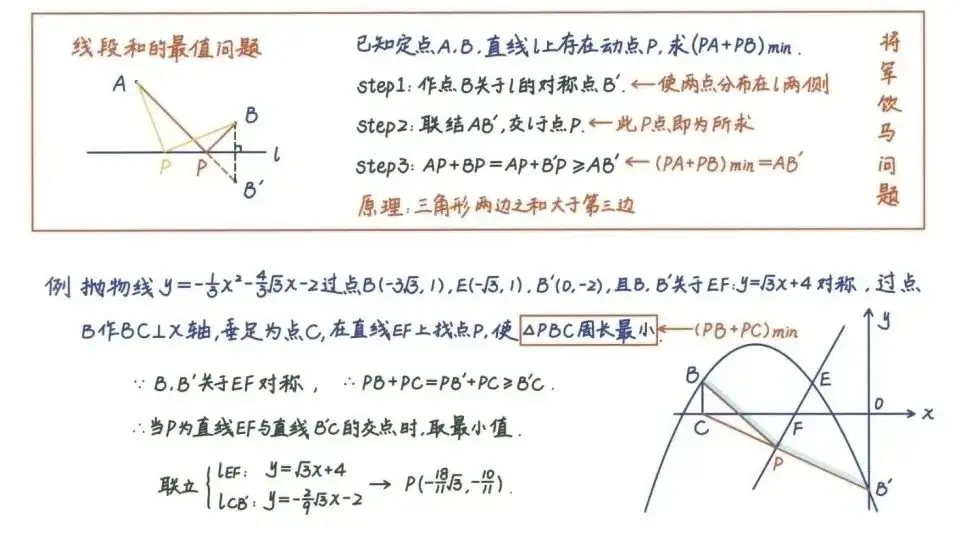 线段和的最值问题
A
B
P
P
l
B′
已知定点A,B,直线l上存在动点P,求(PA+PB)min.
step1:作点B关于l的对称点B′.←使两点分布在l两侧
step2:联结AB′,交l于点P.←此P点即为所求
step3:AP+BP=AP+B′P≥AB′←(PA+PB)min=AB′
原理:三角形两边之和大于第三边
将军饮马问题
例 抛物线y=-1/3x²-4/3√3x-2过点B(-3√3,1),E(-√3,1),B′(0,-2),且B,B′关于EF:y=√3x+4对称,过点
B作BC⊥X轴,垂足为点C,在直线EF上找点P,使△PBC周长最小.←(PB+PC)min
∵B,B′关于EF对称, ∴PB+PC=PB′+PC≥B′C.
∴当P为直线EF与直线B′C的交点时,取最小值.
联立{lEF: y=√3x+4
lCB′:y=-2/9√3x-2 → P(-18/11√3,-10/11).
y
B
E
O
x
C
F
P
B′